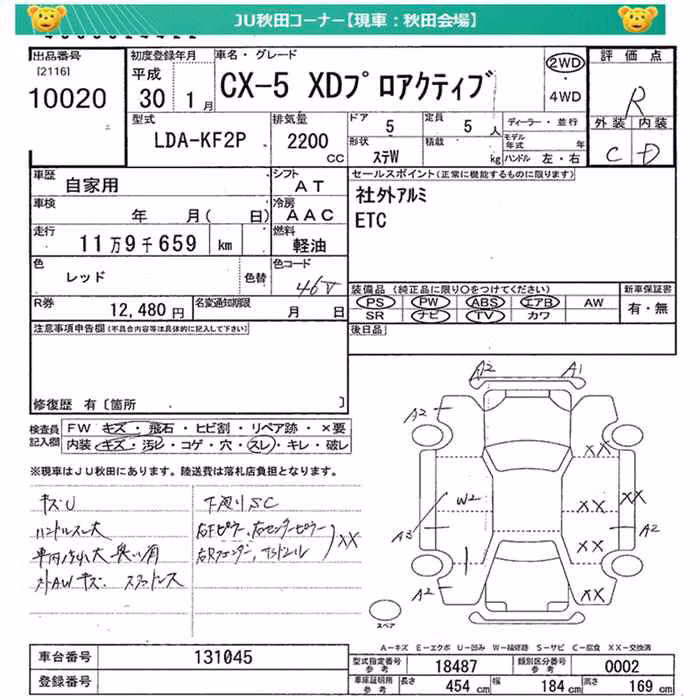 JU秋田コーナー【現車：秋田会場】
出品番号
[2116]
10020
初度登録年月
平成
30 1月
車名・グレード
CX-5 XDプロアクティブ
2WD
・
4WD
評価点
R
外装 内装
C D
型式
LDA-KF2P
排気量
2200
CC
ドア
5
定員
5人
形状
ステW
積載
kg
ディーラー・並行
モデル年式 年
ハンドル 左・右
車歴
自家用
シフト
AT
車検
年 月( 日)
冷房
AAC
走行
11万9千659 km
燃料
軽油
色
レッド
色替
色コード
46V
R券
12,480円
名変通知期限
月 日
セールスポイント(正常に機能するものに限ります)
社外アルミ
ETC
装備品 (純正品に限り○をつけてください)
PS PW ABS エアB AW
SR ナビ TV カワ
新車保証書
有・無
後日品
注意事項申告欄(不具合内容等は具体的に記入して下さい)
修復歴 有〔箇所 〕
検査員記入欄
FW キズ・飛石・ヒビ割・リペア跡・×要
内装 キズ・汚レ・コゲ・穴・スレ・キレ・破レ
※現車はJU秋田にあります。陸送費は落札店負担となります。
キズU
ハンドルスレ大
下廻りSC
XX
A2 A1
A2
XX
W2
XX
XX
A3
A2
XX
A2
XX
スペア
A－キズ E－エクボ U－凹み W－補修跡 S－サビ C－腐食 XX－交換済
車台番号
131045
登録番号
型式指定番号
参考
18487
類別区分番号
参考
0002
車庫証明用
参考
長さ 454 cm 幅 184 cm 高さ 169 cm